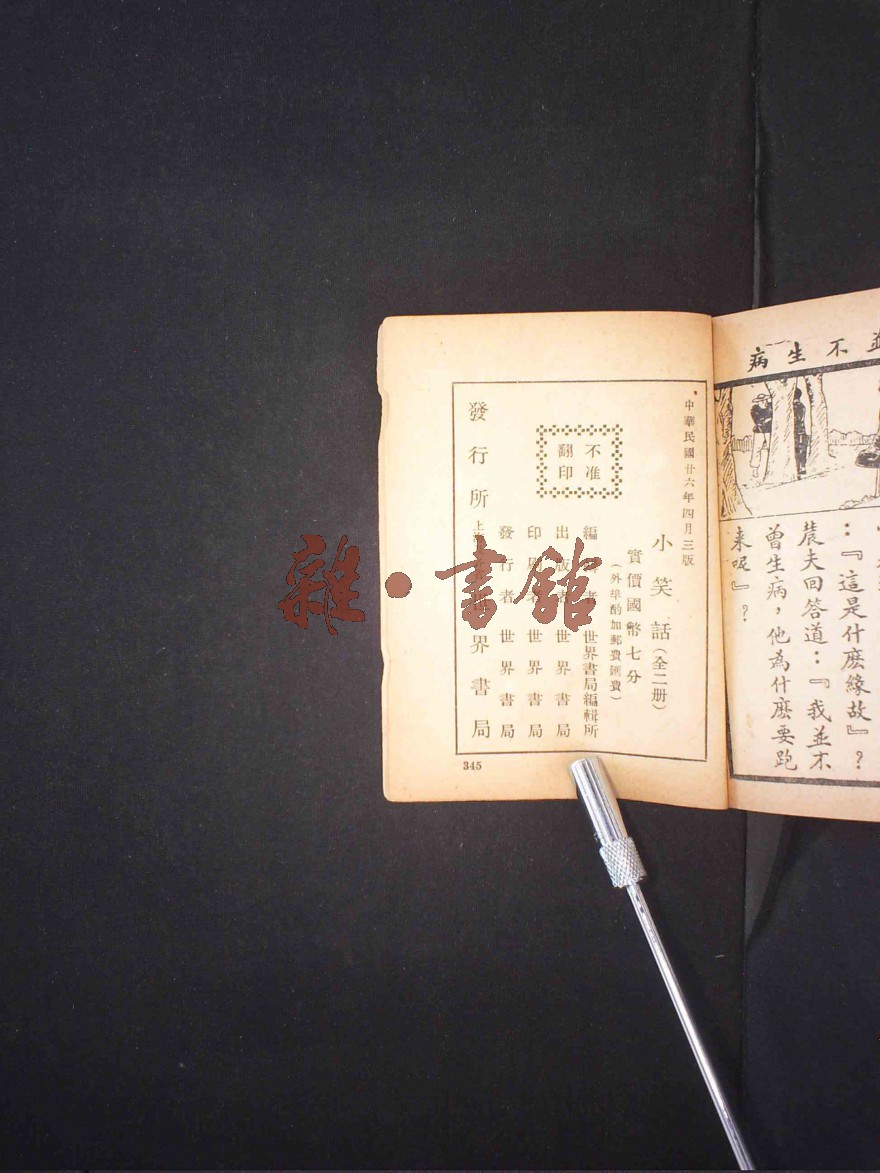 並不生病
：『這是什麽緣故』？
農夫回答道：『我並不
曾生病，他為什麽要跑
来呢』？
中華民國廿六年四月三版
小笑話（全二册）
實價國幣七分
（外埠酌加郵費匯費）
不准
翻印
編 者 世界書局編輯所
出版者 世界書局
印刷者 世界書局
發行者 世界書局
發行所 上 世界書局
345
雜·書館